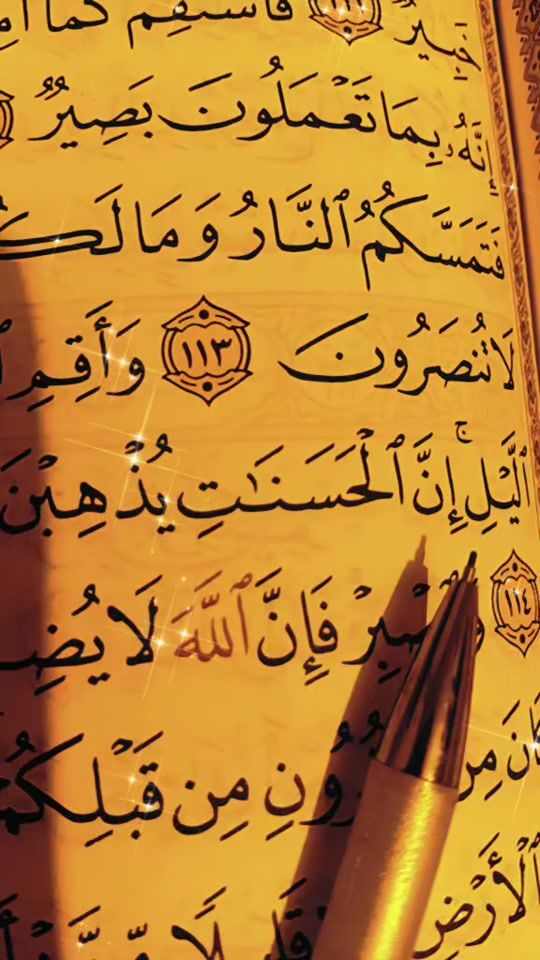 خَبِيرٌ ١١١ فَٱسْتَقِمْ كَمَآ
إِنَّهُۥ بِمَا تَعْمَلُونَ بَصِيرٌ
فَتَمَسَّكُمُ ٱلنَّارُ وَمَا لَكُ
لَا تُنصَرُونَ ١١٣ وَأَقِمِ
ٱلَّيْلِ ۚ إِنَّ ٱلْحَسَنَـٰتِ يُذْهِبْنَ
١١٤ وَٱصْبِرْ فَإِنَّ ٱللَّهَ لَا يُضِ
كَانَ مِنَ ٱلْقُرُونِ مِن قَبْلِكُمْ
ٱلْأَرْضِ إِلَّا قَلِيلًا